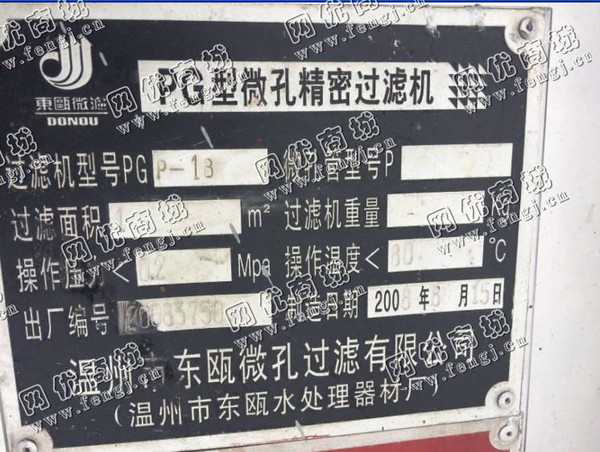 PG型微孔精密过滤机
東甌微滤
DONOU
过滤机型号PG P-18 微孔管型号P
过滤面积 m² 过滤机重量 Kg
操作压力< 0.2 Mpa 操作温度< 80 ℃
出厂编号 制造日期 2008年5月15日
温州市东瓯微孔过滤有限公司
(温州市东瓯水处理器材厂)
网优商城
www.fengj.cn